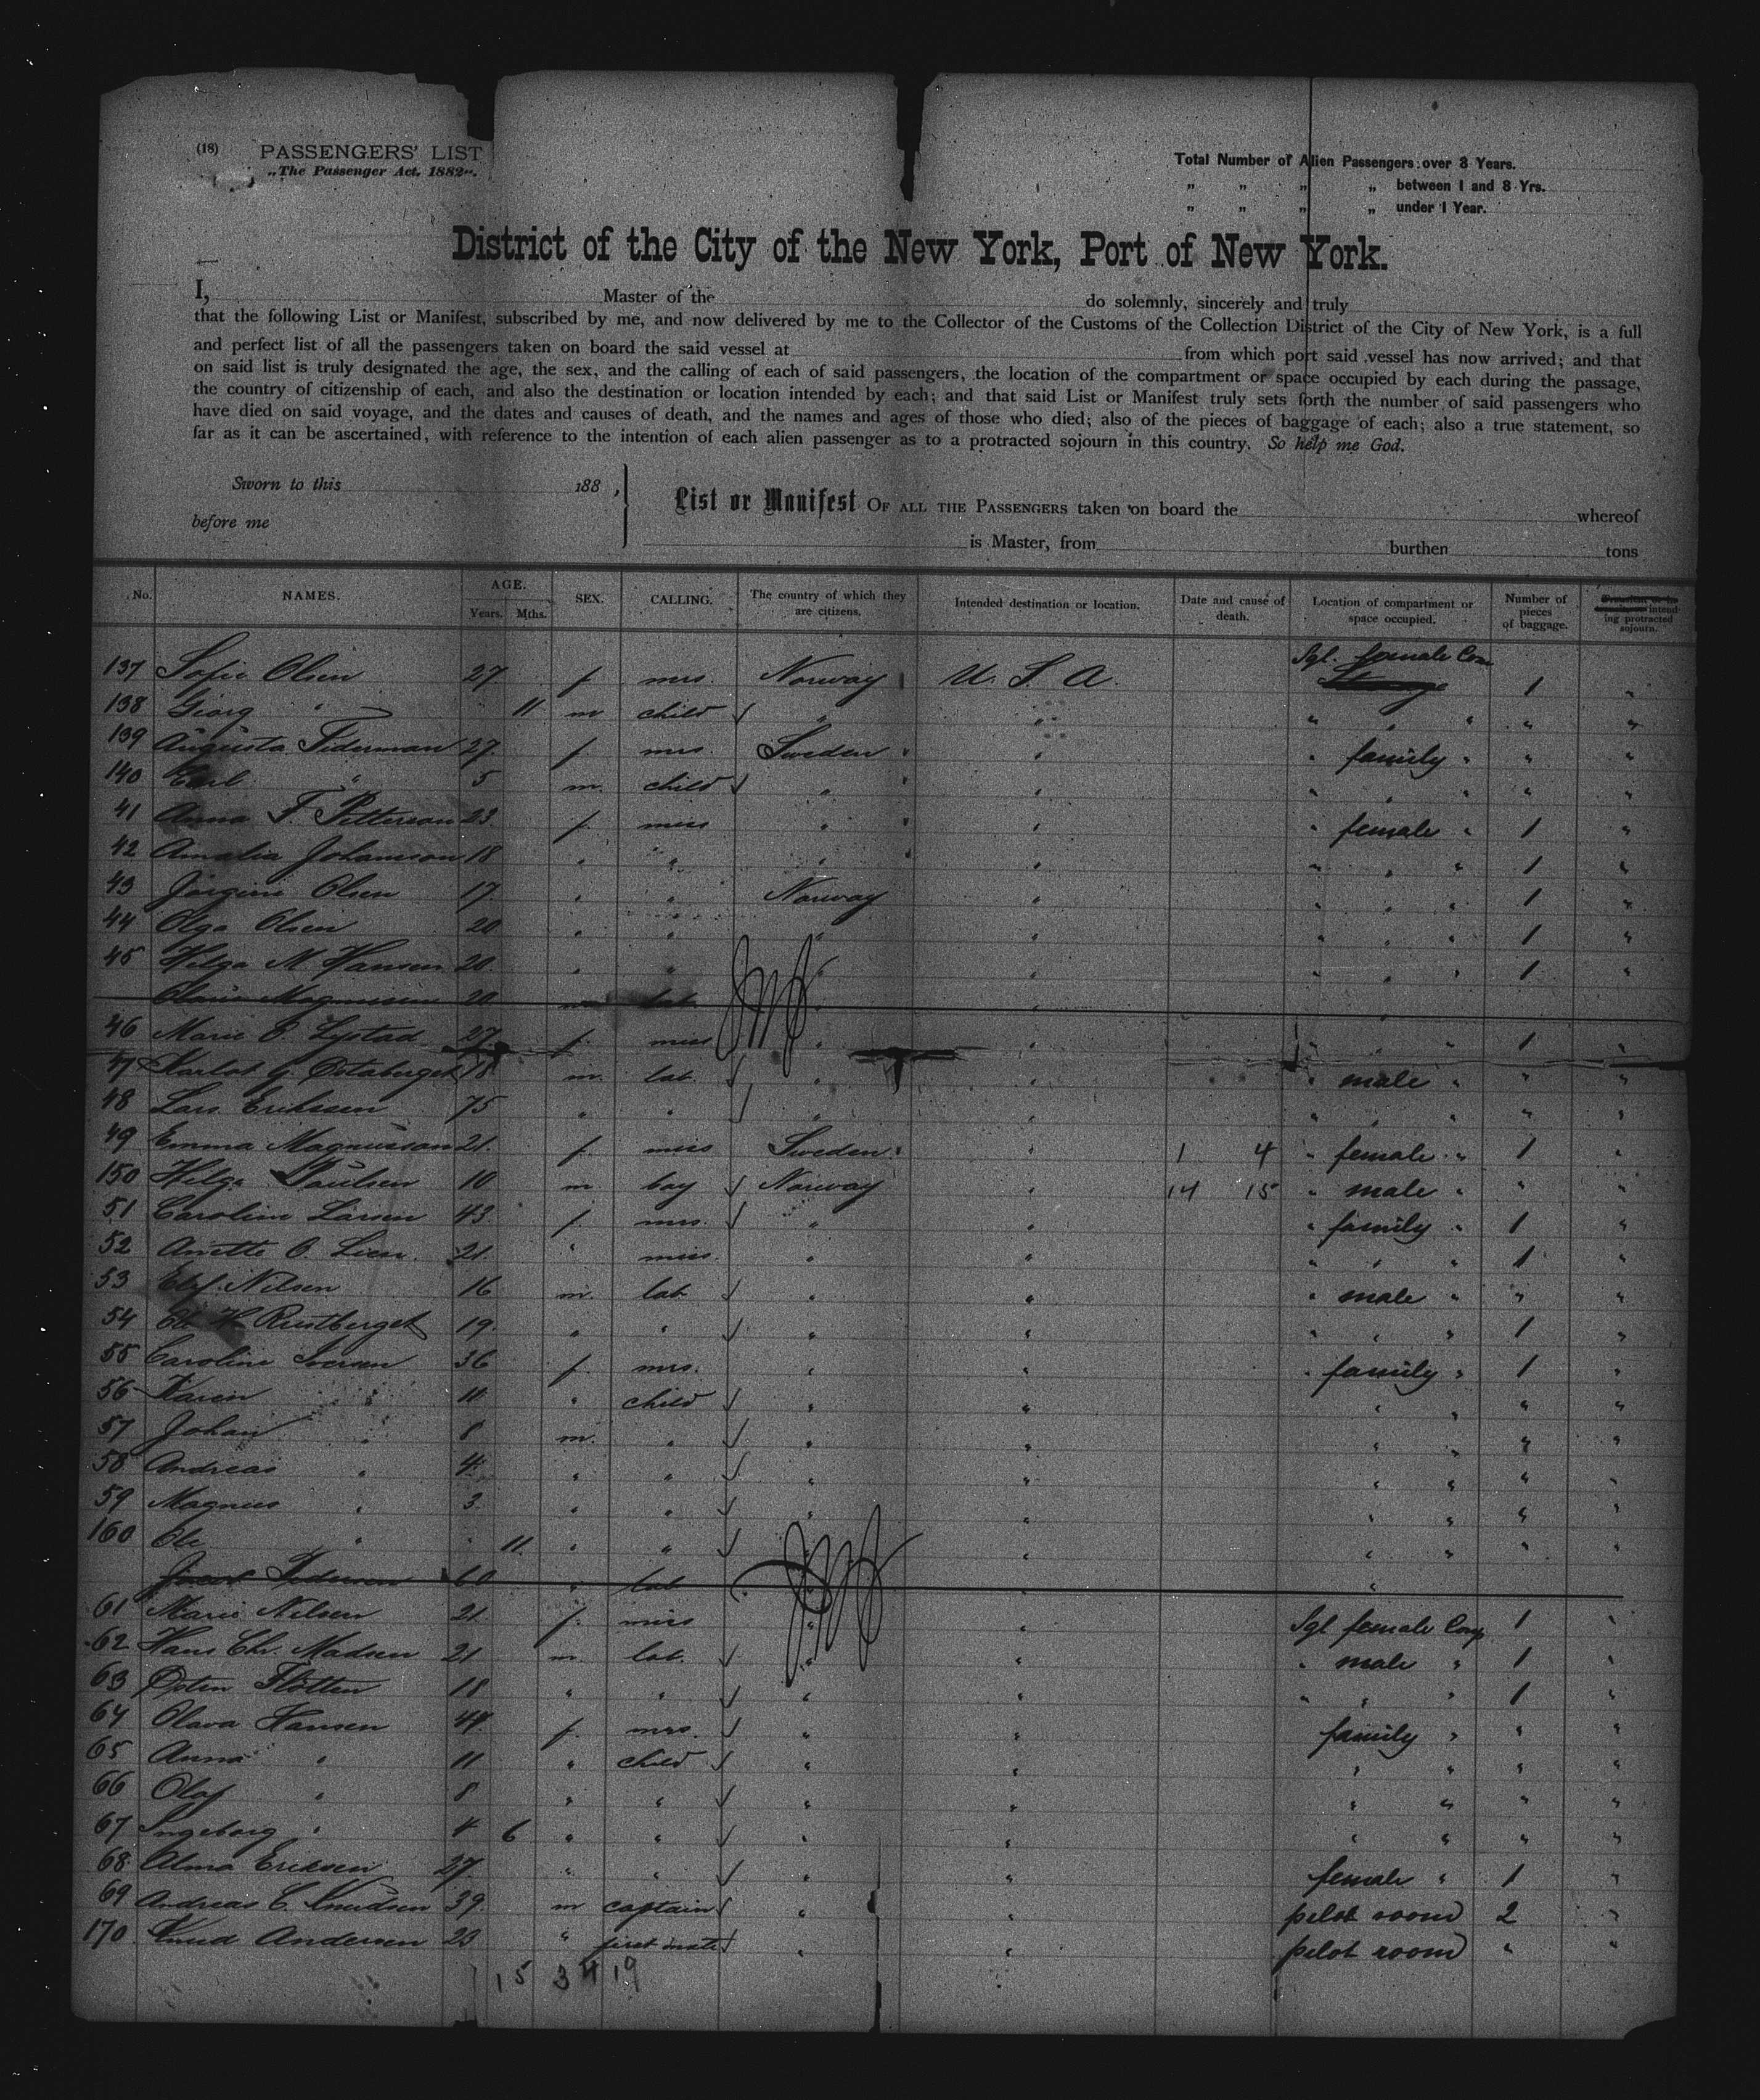 (18) PASSENGERS' LIST
„The Passenger Act, 1882".
Total Number of Alien Passengers over 8 Years.
„ „ „ „ between 1 and 8 Yrs.
„ „ „ „ under 1 Year.
District of the City of the New York, Port of New York.
I, Master of the do solemnly, sincerely and truly
that the following List or Manifest, subscribed by me, and now delivered by me to the Collector of the Customs of the Collection District of the City of New York, is a full
and perfect list of all the passengers taken on board the said vessel at from which port said vessel has now arrived; and that
on said list is truly designated the age, the sex, and the calling of each of said passengers, the location of the compartment or space occupied by each during the passage,
the country of citizenship of each, and also the destination or location intended by each; and that said List or Manifest truly sets forth the number of said passengers who
have died on said voyage, and the dates and causes of death, and the names and ages of those who died; also of the pieces of baggage of each; also a true statement, so
far as it can be ascertained, with reference to the intention of each alien passenger as to a protracted sojourn in this country. So help me God.
Sworn to this 188 ,
before me
List or Manifest OF ALL THE PASSENGERS taken on board the whereof
is Master, from burthen tons
No. NAMES. AGE. Years. Mths. SEX. CALLING. The country of which they are citizens. Intended destination or location. Date and cause of death. Location of compartment or space occupied. Number of pieces of baggage. intending protracted sojourn.
137 Sofie Olsen 27 f mrs. Norway U. S. A. Sgl. female Com 1 "
138 Giorg " 11 m child " " " " " " "
139 Augusta Tiderman 27 f. mrs. Sweden " " family " " "
140 Carl " 5 m. child " " " " " " "
41 Anna F. Petterson 23 f. miss " " " female " 1 "
42 Amalia Johansson 18 " " " " " " " 1 "
43 Jörgine Olsen 17 " " Norway " " " " 1 "
44 Olga Olsen 20 " " " " " " " 1 "
45 Helga M. Hansen 20 " " " " " " " 1 "
Magnussen 20 m lab. " "
46 Marie O. Lystad 27 f. miss " " " " " 1 "
47 Karlot G. 18 m. lab. " " " male " " "
48 Lars Eriksen 75 " " " " " " " " "
49 Emma Magnusson 21 f. miss Sweden " 1 4 " female " 1 "
150 Helge Paulsen 10 m boy Norway " 14 15 " male " " "
51 Caroline Larsen 43 f. mrs. " " " family " 1 "
52 Anette O. Lien 21. " miss " " " " " 1 "
53 Nilsen 16 m. lab. " " " male " " "
54 H. Rustberget 19. " " " " " " " 1 "
55 Caroline Iversen 36 f. mrs. " " " family " 1 "
56 Karen " 11 " child " " " " " "
57 Johan " 8 m. " " " " " " "
58 Andreas " 4 " " " " " " " "
59 Magnus " 3 " " " " " " " "
160 Ole " 11. " " " " " " " "
Pedersen 60 " lab " " "
61 Marie Nilsen 21. f. miss " " Sgl female Comp 1 "
62 Hans Chr. Madsen 21 m lab. " " " male " 1 "
63 Östen Flötten 18 " " " " " " " 1 "
64 Olava Hansen 44 f. mrs. " " family " " "
65 Anna " 11 " child " " " " " "
66 Olaf " 8 " " " " " " " "
67 Ingeborg " 4 6 " " " " " " " "
68 Alma Eriksen 27 " " " " female " 1 "
69 Andreas C. Knudsen 39. m captain " " pilot room 2 "
170 Knud Andersen 23 " first mate " " pilot room " "
15 34 19